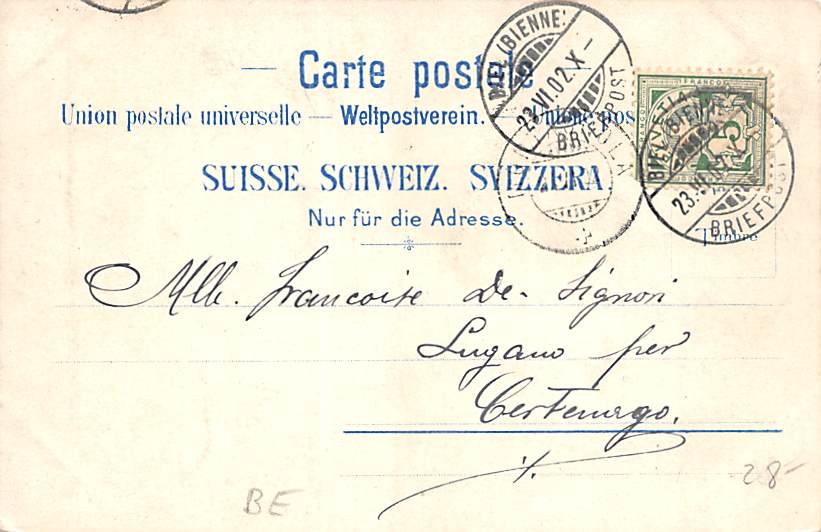 Carte postale
Union postale universelle — Weltpostverein. — Unione pos
SUISSE. SCHWEIZ. SVIZZERA
Nur für die Adresse.
Timbre
BIEL (BIENNE)
23.VI.02.X–
BRIEFPOST
FRANCO
HELVETIA
5
BIEL (BIENNE)
23.VI.02
BRIEFPOST
Mlle. Francoise De-Signori
Lugano per
Certenago.
BE
28-